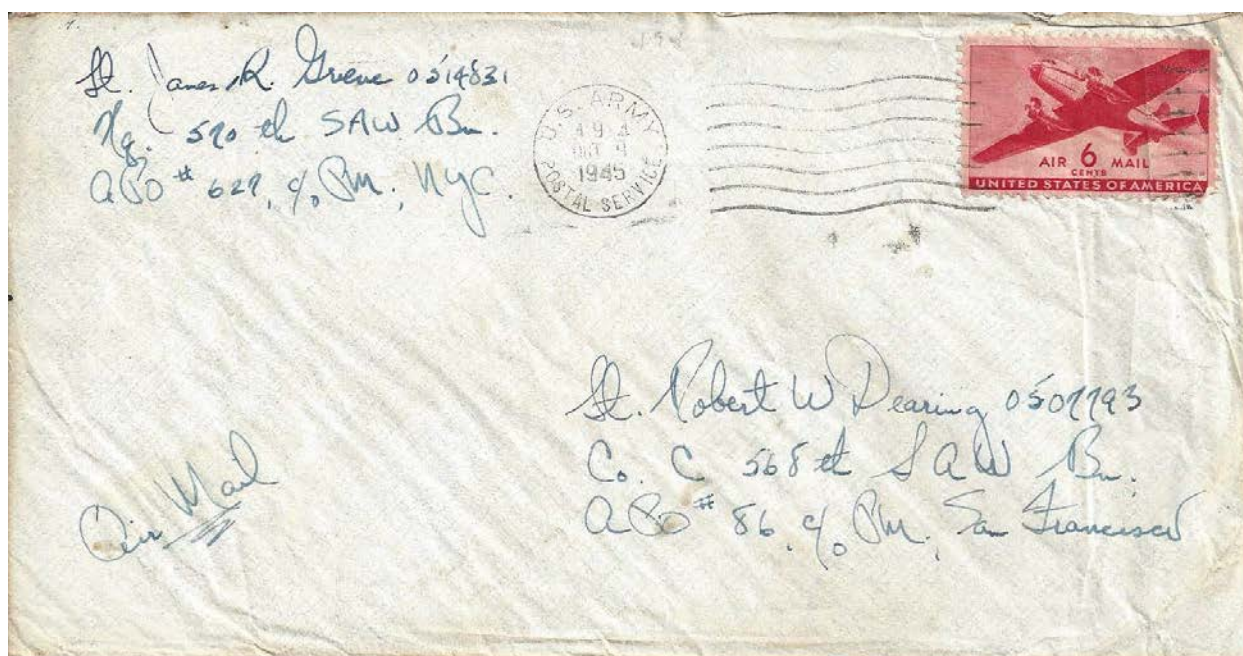 Lt. James R. Greene 0514831
Hq. 590 th SAW Bn.
APO # 627, c/o PM, NYC.
U.S. ARMY
1945
POSTAL SERVICE
AIR 6 MAIL
CENTS
UNITED STATES OF AMERICA
Lt. Robert W Dearing 0507793
Co. C 568 th SAW Bn.
APO # 86, c/o PM, San Francisco
Air Mail